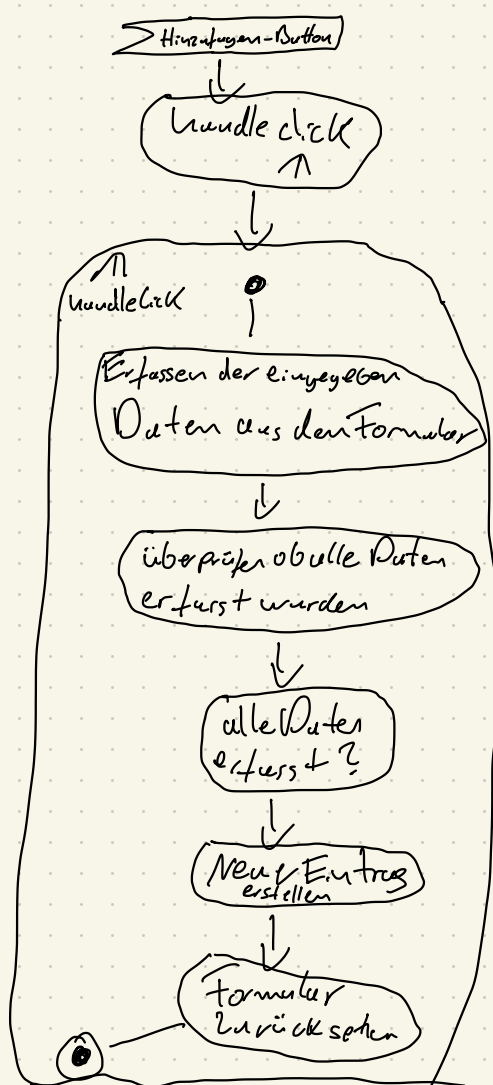 Hinzufügen-Button
handle click
handleClick
Erfassen der eingegeben
Daten aus den Formular
überprüfen ob alle Daten
erfasst wurden
alle Daten
erfasst?
Neuer Eintrag
erstellen
Formular
zurücksehen